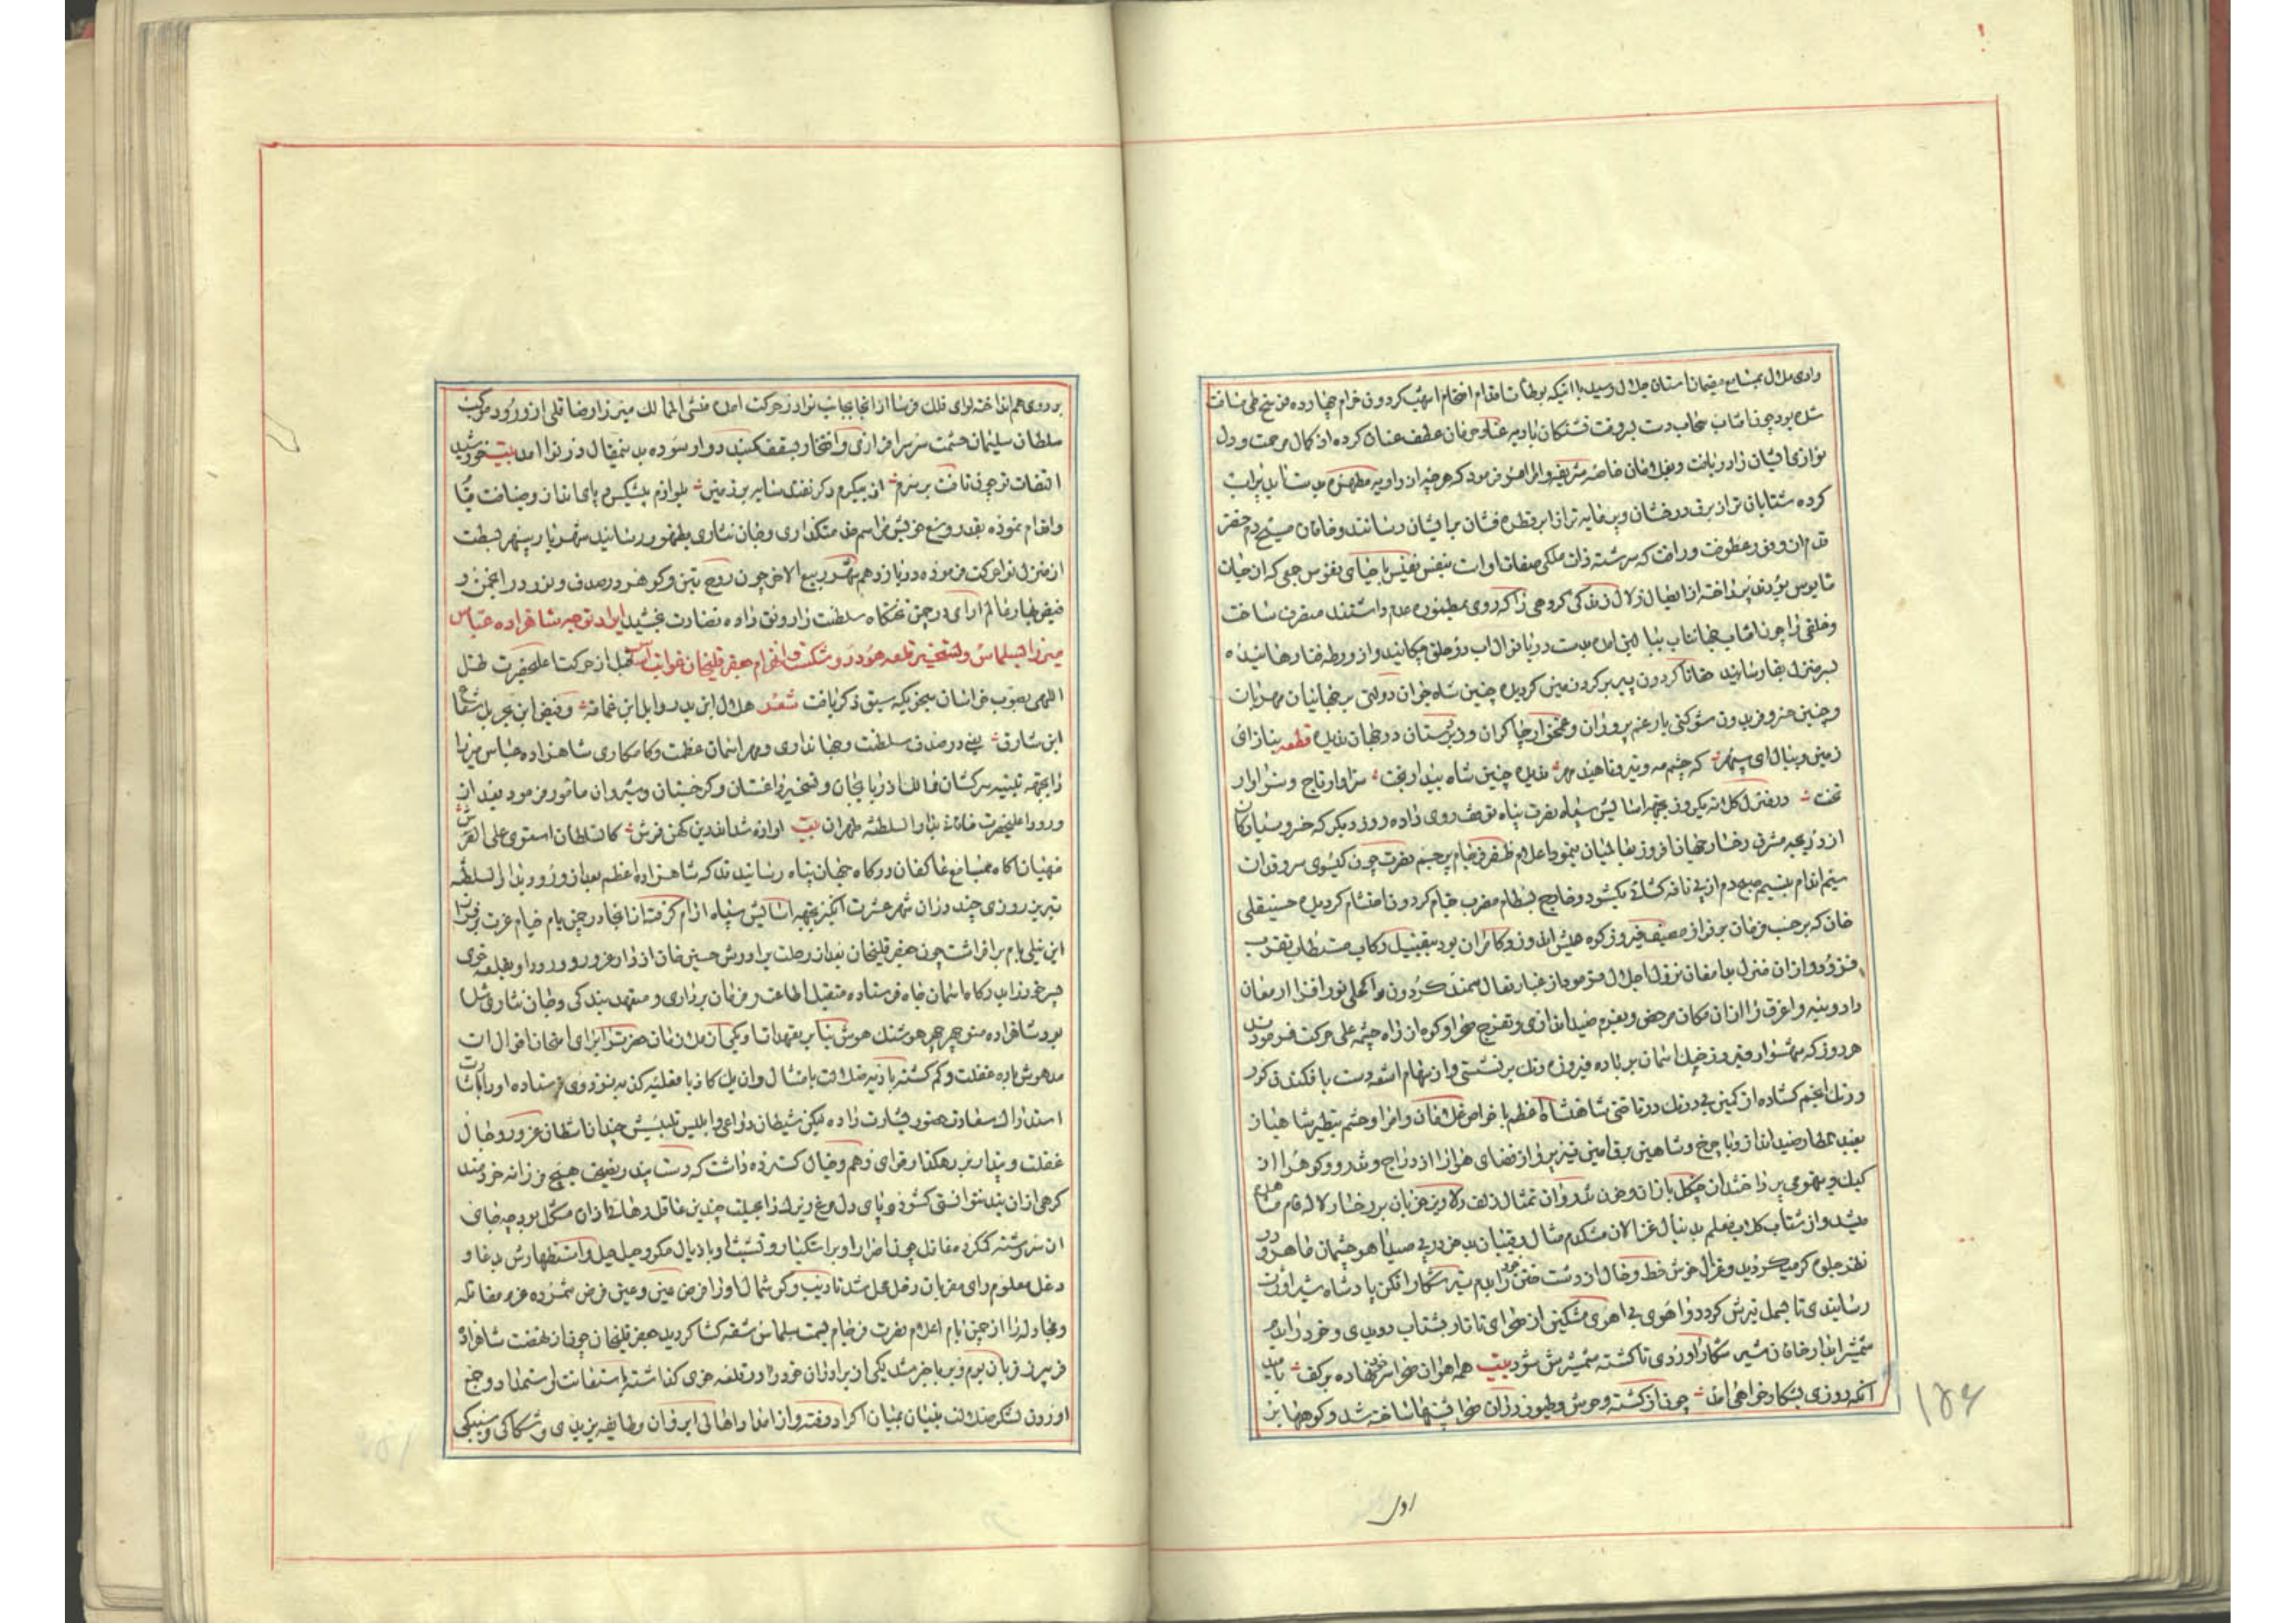 وادی ملال بمسامع مقیمان آستان جلال رسید با آنکه بوطآت اقدام افخام اشهب گردون خرام چهارده فرسخ طی مسافت
شده بود چون آفتاب سحاب دست بروقت تشنگان بادیه عنا و حرمان عطف عنان کرده از کمال مرحمت و دل
نوازی ایشان را دریافت و بغلامان خاصه شریفه و امرا امر فرمود که هر چه از راویه مطهره بدست آید پر آب
کرده شتابان تر از برق درخشان و پرمایه تر از ابر قطره فشان برایشان رسانند و خاقان مسیح دم خضر
قدم از وفور عطوفت و رافت که سرشته ذات ملکی صفات اوست بنفس نفیس باحیای نفوس جمعی که از حیات
مایوس بودند پرداخته از ایصال زلال زندگی گروهی را که روی بمطموره عدم داشتند منصرف ساخت
وخلقی را چون آفتاب جهانتاب بلب آمده بدست دریا نوال آب در حلق چکانید و از ورطه فنا رهانیده
بسر منزل بقا رسانید حقا تا گردون پیر بر گردن مین گردیده چنین شاه جوان دولتی بر جهانیان مهربان
وچنین خسرو فریدون شوکتی یار غم پروران و غمخوار چاکران و زیردستان در جهان ندیده قطعه بناز ای
زمین و ببال ای سپهر که چشم مه و تیر و ناهید مهر ندیده چنین شاه بیدار بخت سزاوار تاج و سزاوار
تخت در منزل کلاته یکروز بجهة آسایش سپاه نصرت پناه توقف روی داده روز دیگر که خسرو سیارگان
از دریچه مشرق رخسار جهان افروز بعالمیان بنمود اعلام ظفر فرجام پرچم نصرت چون گیسوی سرو قدان
سیم اندام بنسیم صبحدم از پی نافه گشائی بگشود و خارج بسطام مضرب خیام گردون احتشام گردیده حسینقلی
خان که بر حسب فرمان بر فراز مصیف فیروزکوه عیش اندوز و کامران بود بتقبیل رکاب مستطاب تقرب
فزود و از آن منزل بدامغان نزول اجلال فرمود از غبار نعال سمند گردون مدار کحلی نور افزا از مغان
داد و بنه و اغرق را از آن مکان مرخص و بعزم صید اندازی و تفرج صحرا و کوه از راه چشمه علی حرکت فرمودند
هر روز که شهسوار فیروز چنگ آسمان بر باده فیروزه رنگ بر نشستی و از سهام اشعه دست بافکندن کرد
و رنگ انجم گشاده از کمین بیدرنگ در تاختی شاهنشاه اعظم با خواص غلامان و امرا و حشم بنظیر شاهباز
بقید شکار صید انداز و باچرخ و شاهین برق آئین تیز پر از فضای هوا از دراج و تذرو و کوهسار از
کبک و تیهو می پرداختند از چنگل بازان و خون تذروان تمثال زلف دلاویز خوبان بر رخسار لاله فام هامون
میشد و از شتاب کلاب معلم بدنبال غزالان مشکدم مثال رقیبان بدخو در پی صید آهو چشمان ظاهر و در
نظر جلوه گر میگردید و غزال خوش خط و خال از دشت ختن خود را بدم تیر شکار افکن پادشاه شیر اوژن
رسانیدی تا بسمل تیرش گردد و آهوی بی آهوی مشکین از صحرای تاتار بشتاب دویدی و خود را بدم
شمشیر آبدار خاقان شیر شکار آوردی تا کشته شمشیرش شود بیت همه آهوان صحرا سر خود نهاده بر کف بامید
آنکه روزی بشکار خواهی آمد چون از کشته وحوش و طیور در آن صحرا پشتها ساخته شد و کوهها بر
۱۵۶
اول
بر روی هم انداخته لوای فلک فرسا از آنجا بجانب نوا در حرکت آمده منشی الممالک میرزا رضا قلی از ورود موکب
سلطان سلیمان حشمت سر سرافرازی و افتخار بسقف گنبد دوار سوده بدینمقال در نوا آمد بیت خورشید
التفات تو چون تافت بر سرم از پیکرم دگر نفتد سایه بر زمین بلوازم پیشکش و پای انداز و ضیافت قیام
واقدام نموده بقدر وسع خویش مراسم خدمتگذاری و جان نثاری بظهور رسانید شهریار سپهر بسطت
از منزل نوا حرکت فرموده در یازدهم شهر ربیع الآخر چون روح بتن و گوهر در صدف و نور در انجمن و
فیض بهار عالم آرای در چمن تختگاه سلطنت را رونق داده نضارت بخشید ایراد توجه شاهزاده عباس
میرزا بسلماس و تسخیر قلعه هودر و شکست و انهزام جعفر قلیخان خواند است قبل از حرکت اعلیحضرت ظل
اللهی بصوب خراسان بنحویکه سبق ذکر یافت شعر هلال ابن بدر وابل ابن غمامة و فیض ابن بحر بل شعاع
ابن شارق یعنی در صدف سلطنت و جهانداری و مهر آسمان عظمت و کامکاری شاهزاده عباس میرزا
را بجهة تنبیه سرکشان ممالک آذربایجان و تسخیر داغستان و گرجستان و شیروان مامور فرمود بعد از
ورود اعلیحضرت خاقانی بدار السلطنه طهران بیت آوازه شد اندرین کهن فرش کالسلطان استوی علی العرش
منهیان آگاه بمسامع عاکفان درگاه جهان پناه رسانیدند که شاهزاده اعظم بعد از ورود بدار السلطنه
تبریز روزی چند در آن شهر عشرت انگیز بجهة آسایش سپاه آرام گرفته از آنجا در چمن یام خیام عزت بر فراز
این نیلی بام بر افراشت چون جعفر قلیخان بعد از رحلت برادرش حسین خان از راه غرور و ورود او بقلعه خوی
عرضه بدرگاه آسمان جاه فرستاده متقبل اطاعت و فرمان برداری و متعهد بندگی و جان نثاری شده
بود شاهزاده منوچهر چهر هوشنگ هوش بنا بر تعهدات او یکی از ملازمان حضرت را برای امتحان اقوال آن
مدهوش باده غفلت و گم گشته بادیه ضلالت بامثال و ان یکاد با مغلبه کذ به بنزد وی فرستاده او را باشارت
استدراک سعادت حضور بشارت داده لیکن شیطان دواعی و ابلیس تلبیس چندان سلطان غرور و خیال
غفلت و پندار بر رهگذار قوای وهم و خیال گسترده داشت که دست پند و نصیحت هیچ فرزانه خردمند
گرهی از آن بند نتوانستی گشود و پای دل مرغ زیرک را بحیلت چندین عاقل رها کردن از آن مشکل بود چه جای
آن سررشته گم کرده غافل چون اضرار او بر استکبار و تشبث او باذیال مکر و حیل و استظهارش بدغا و
دغل معلوم رای مقربان دخل عمل شد تادیب و گوشمال او را فرض عین و عین فرض شمرده عزم مقاتله
ومجادله را از چمن یام اعلام نصرت فرجام بسمت سلماس شقه گشا گردید جعفر قلیخان چون از نهضت شاهزاده
فریبرز فر بآن بوم و بر باخبر شد یکی از برادران خود را در قلعه خوی گذاشته باستعانت و استمداد و جمع
آوردن لشکر ضلالت بنیان بمیان اکراد رفته و از امداد اهالی ایروان و طایفه یزیدی و شکاکی و سیبکی